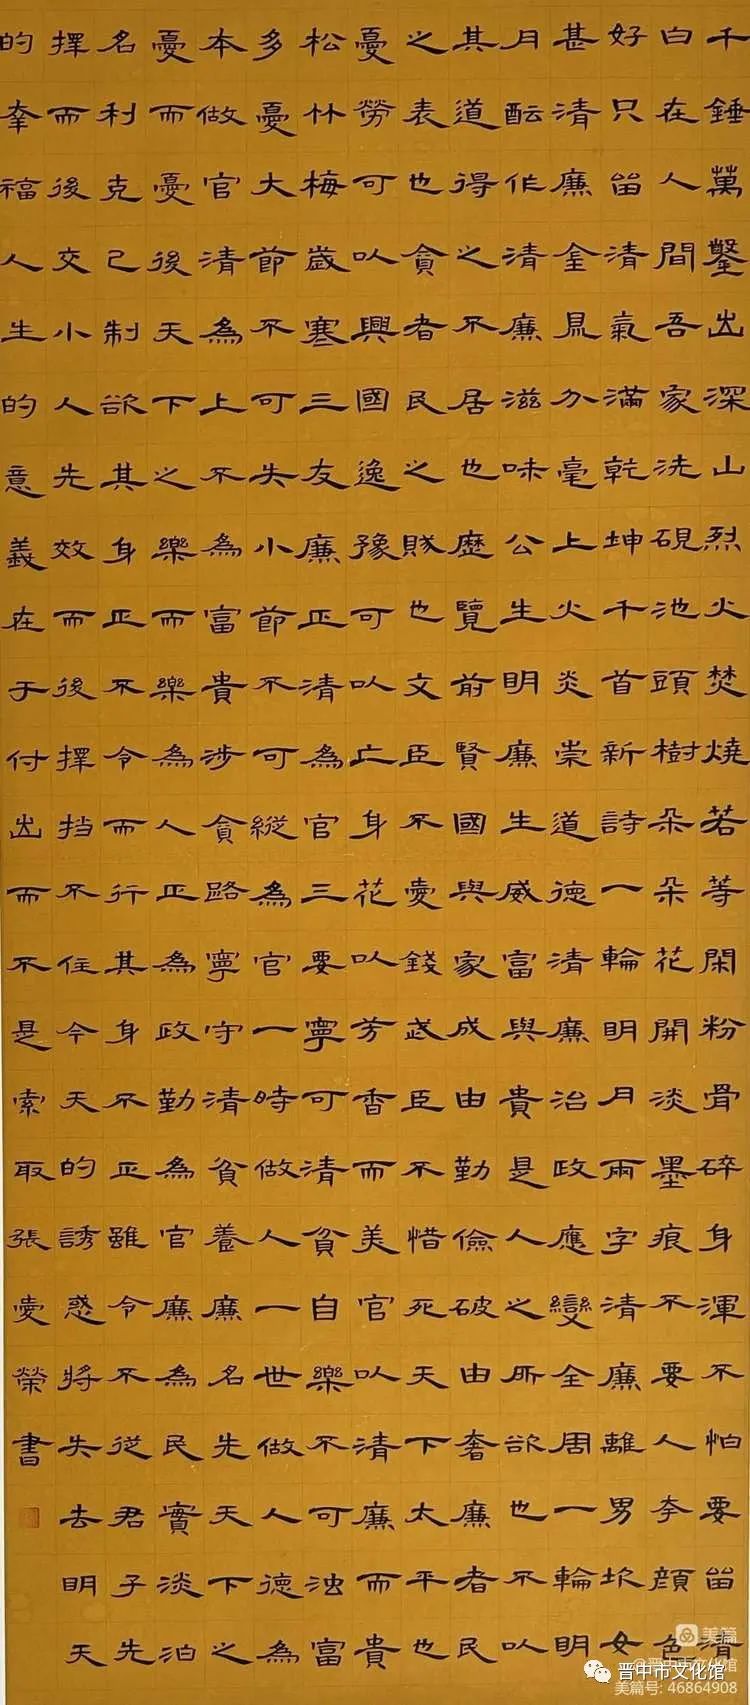 千錘萬鑿出深山烈火焚燒若等閑粉骨碎身渾不怕要留清
白在人間吾家洗硯池頭樹朵朵花開淡墨痕不要人夸顏色
好只留清氣滿乾坤千首新詩一輪明月兩字清廉離男坎女
甚清廉金分毫上火炎崇道德清廉治政應變全周一輪明
月酝作清廉滋味公生明廉生威富與貴是人之所欲也不以
其道得之不居也歷覽前賢國與家成由勤儉破由奢廉者民
之表也貪者民之賊也文臣不愛錢武臣不惜死天下太平也
憂勞可以興國逸豫可以亡身花以芳香而美官以清廉而貴
松竹梅歲寒三友廉正清為官三要寧可清貧自樂不可濁富
多憂大節不可失小節不可縱為官一時做人一世做人德為
本做官清為上不為富貴涉貪路寧守清貧養廉名先天下之
憂而憂後天下之樂而樂為人正為政勤為官廉為民實淡泊
名利克己制欲其身正不令而行其身不正雖令不從君子先
擇而後交小人先效而後擇挡不住今天的誘惑將失去明天
的幸福人生的意義在于付出而不是索取張愛榮書
美篇
@晋中市文化馆
晋中市文化馆
美篇号: 46864908